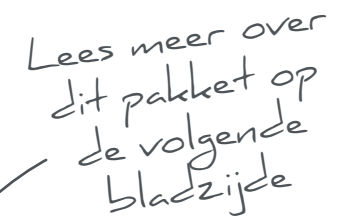 Lees meer over
dit pakket op
de volgende
bladzijde